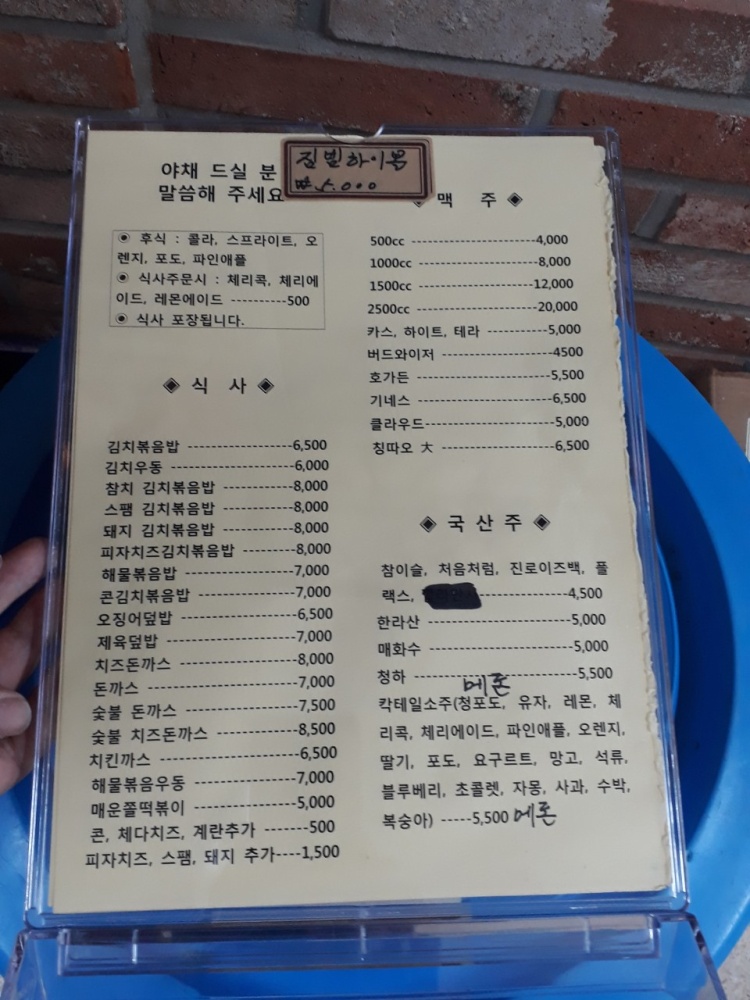 야채 드실 분
말씀해 주세요
짐빔하이볼
₩5,000
◉ 후식 : 콜라, 스프라이트, 오
렌지, 포도, 파인애플
◉ 식사주문시 : 체리콕, 체리에
이드, 레몬에이드 ----------500
◉ 식사 포장됩니다.
◈ 식 사 ◈
김치볶음밥 --------------------6,500
김치우동 -----------------------6,000
참치 김치볶음밥 -------------8,000
스팸 김치볶음밥 -------------8,000
돼지 김치볶음밥 -------------8,000
피자치즈김치볶음밥 ---------8,000
해물볶음밥 --------------------7,000
콘김치볶음밥 -----------------7,000
오징어덮밥 --------------------6,500
제육덮밥 -----------------------7,000
치즈돈까스 --------------------8,000
돈까스 --------------------------7,000
숯불 돈까스 -------------------7,500
숯불 치즈돈까스 -------------8,500
치킨까스 -----------------------6,500
해물볶음우동 -----------------7,000
매운쫄떡볶이 -----------------5,000
콘, 체다치즈, 계란추가 -------500
피자치즈, 스팸, 돼지 추가----1,500
맥 주 ◈
500cc -----------------------4,000
1000cc -----------------------8,000
1500cc ----------------------12,000
2500cc ----------------------20,000
카스, 하이트, 테라 -----------5,000
버드와이저 --------------------4500
호가든 -------------------------5,500
기네스 -------------------------6,500
클라우드-----------------------5,000
칭따오 大 ----------------------6,500
◈ 국 산 주 ◈
참이슬, 처음처럼, 진로이즈백, 풀
랙스, ----------------4,500
한라산 --------------------------5,000
매화수 --------------------------5,000
청하 ----------------------------5,500
메론
칵테일소주(청포도, 유자, 레몬, 체
리콕, 체리에이드, 파인애플, 오렌지,
딸기, 포도, 요구르트, 망고, 석류,
블루베리, 초콜렛, 자몽, 사과, 수박,
복숭아) -----5,500 메론